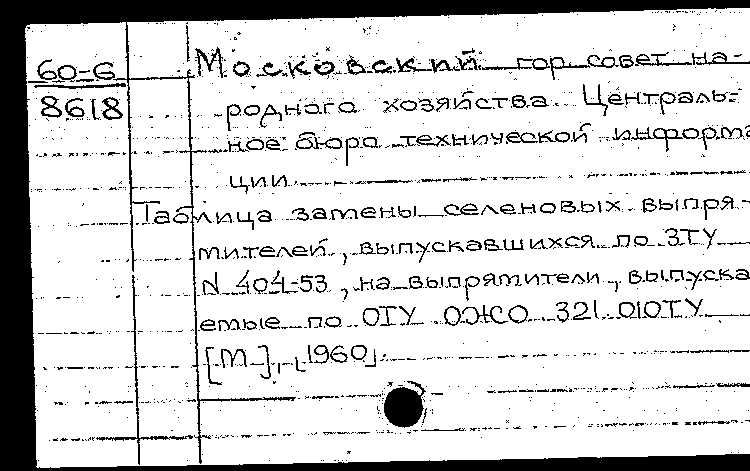 60-6
8618
Московский гор. совет на-
родного хозяйства. Централь-
ное бюро технической информа
ции.
Таблица замены селеновых выпря-
мителей, выпускавшихся по ЗТУ
N 404-53, на выпрямители, выпуска
емые по ОТУ ОЖО. 321. 010ТУ
[М], [1960].